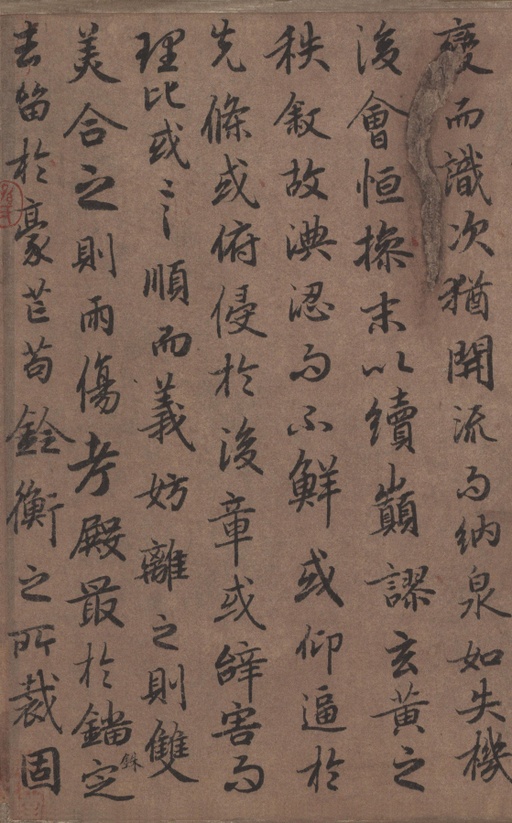 變而識次猶開流而納泉如失機
後會恒操末以續巔謬玄黃之
秩敘故淟涊而不鮮或仰逼於
先條或俯侵於後章或辭害而
理比或言順而義妨離之則雙
美合之則兩傷考殿最於錙銖定
去留於豪芒苟銓衡之所裁固